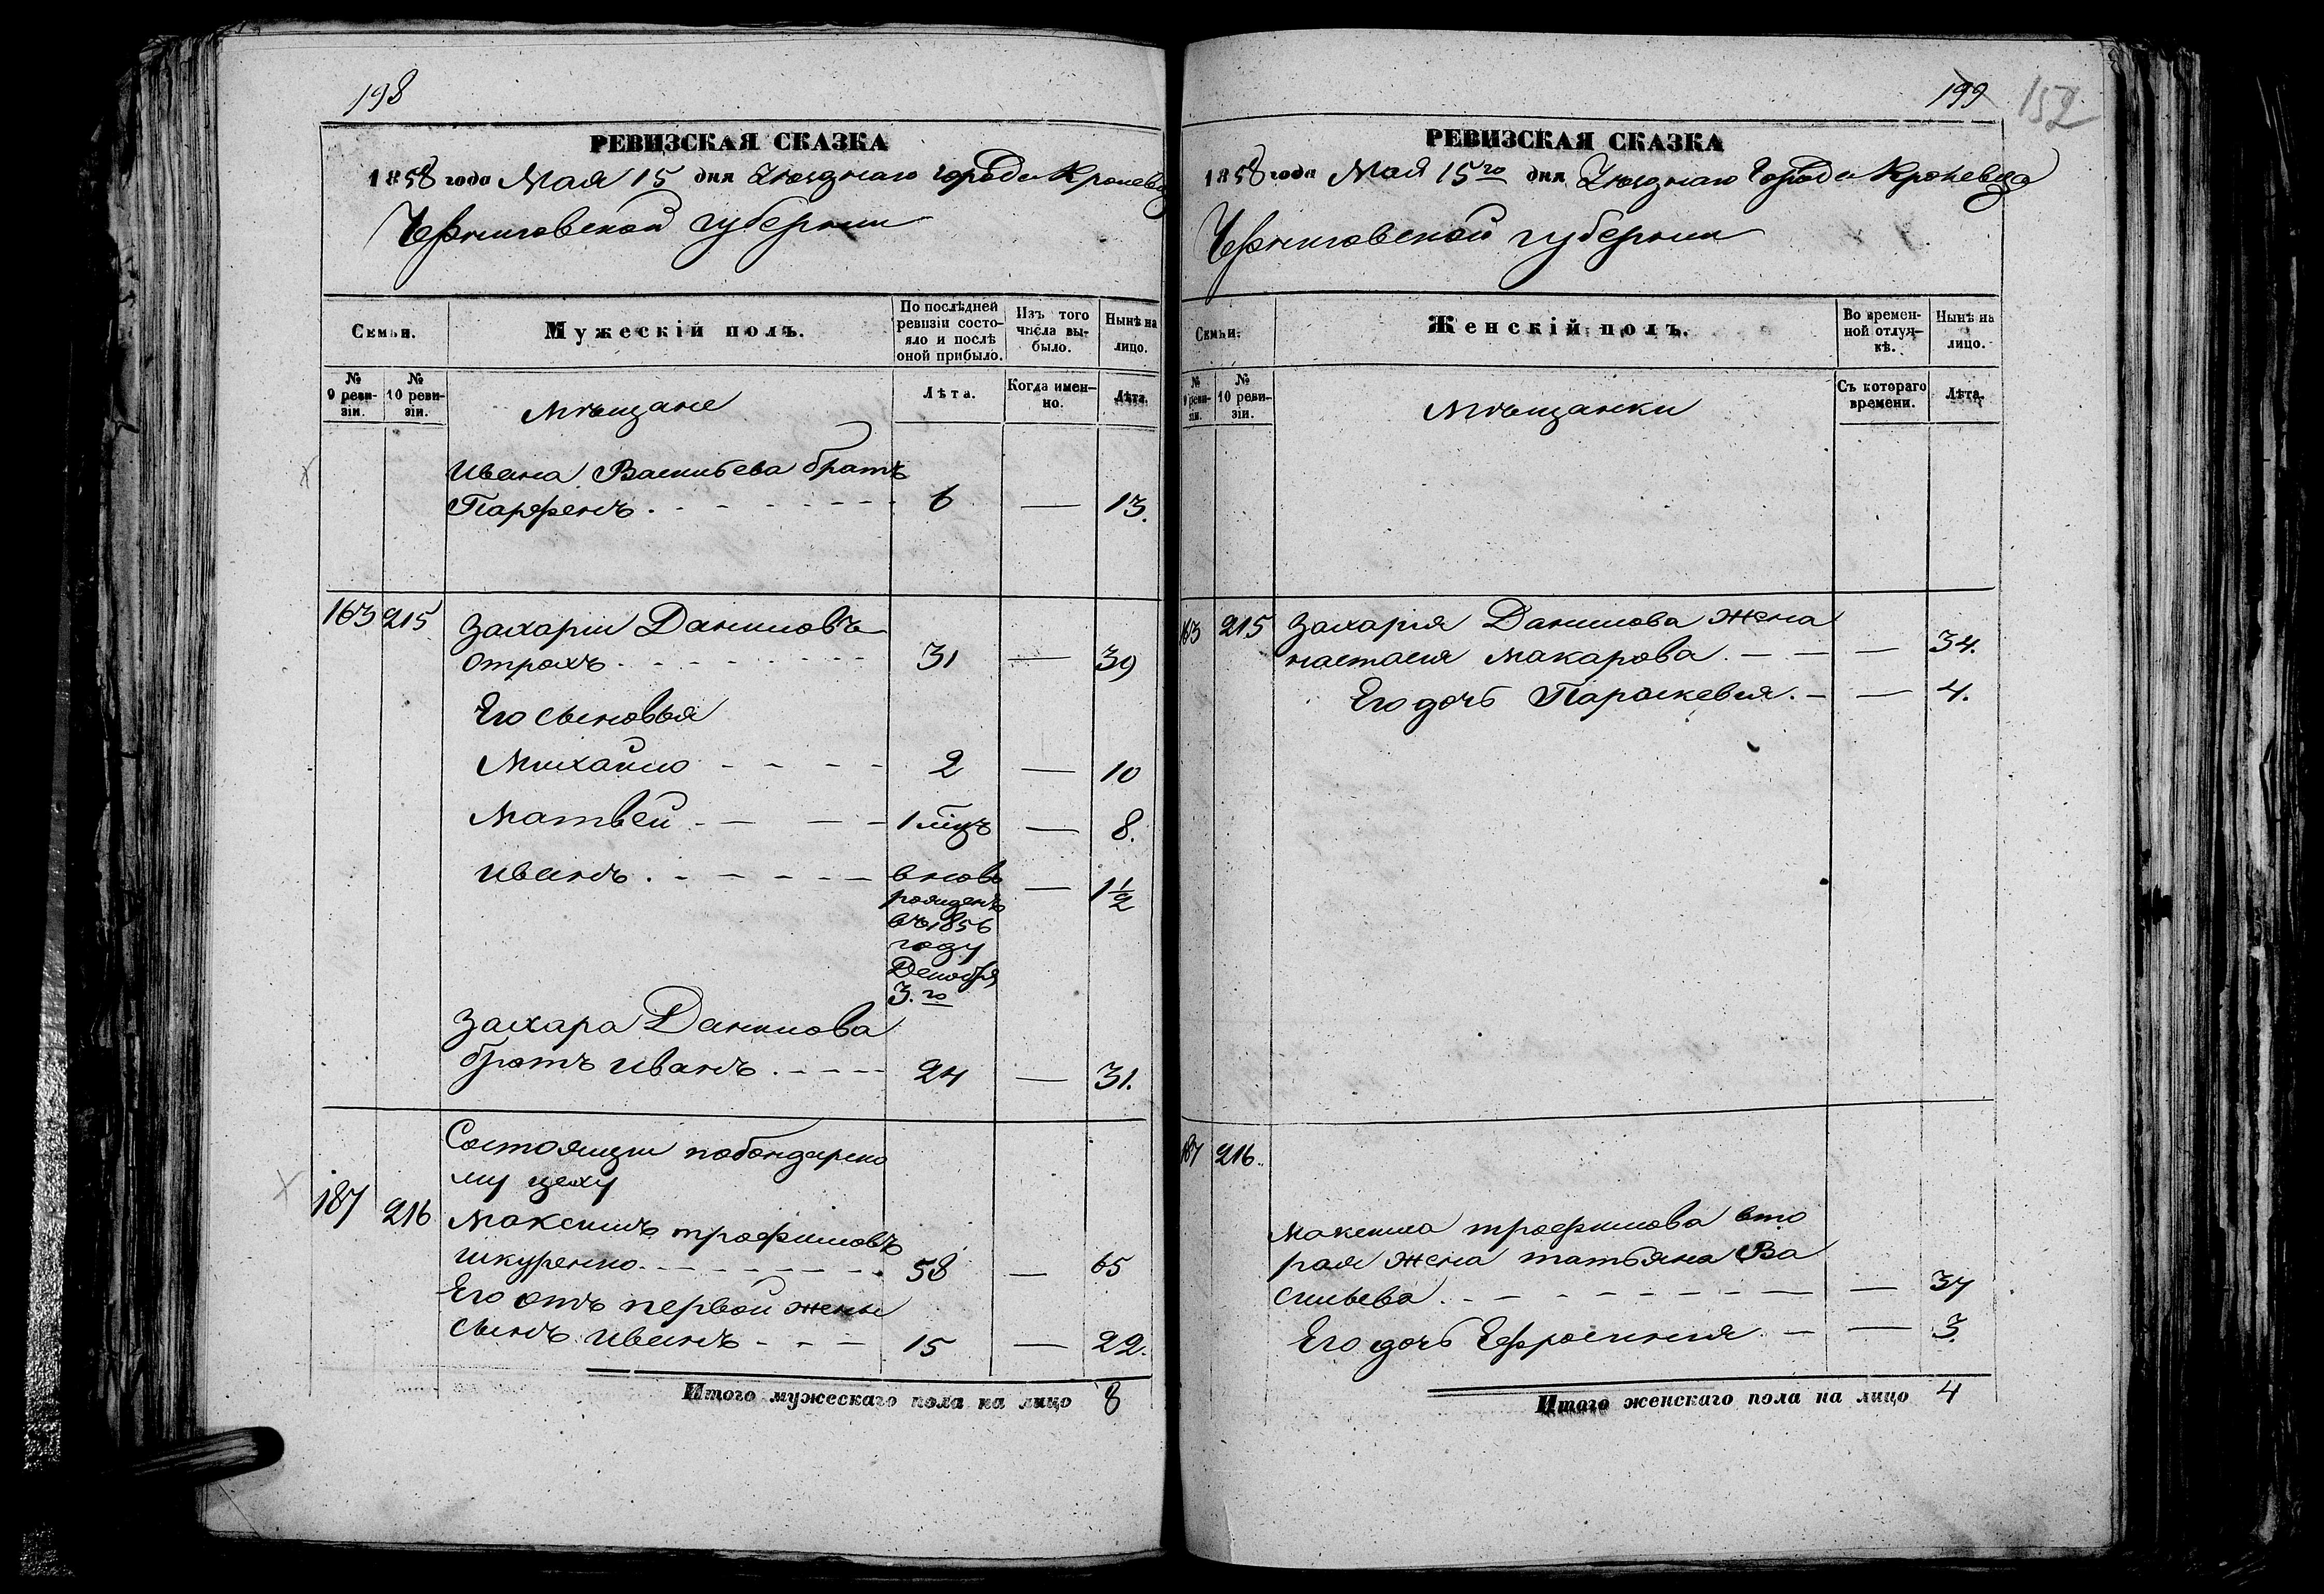 198
РЕВИЗСКАЯ СКАЗКА
1858 года Мая 15 дня Уѣзднаго города Кролевца
Черниговской губернии
Семьи.
Мужескій полъ.
По послѣдней ревизіи состояло и послѣ оной прибыло.
Изъ того числа выбыло.
Нынѣ на лицо.
№ 9 ревизіи.
№ 10 ревизіи.
Мѣщане
Лѣта.
Когда именно.
Лѣта.
Ивана Васильева братъ
Парфенъ. 6 — 13.
163 215 Захарій Даниловъ
Отрохъ. 31 — 39
Его сыновья
Михайло 2 — 10
Матвей 1 мцъ — 8.
Иванъ. вновь — 1½
рожденъ
въ 1856
году
Декабря
3.го
Захара Данилова
братъ Иванъ. 24 — 31.
Состоящии побондарско
му цеху
187 216 Максимъ трофимовъ
Шкуренко. 58 — 65
Его отъ первой жены
сынъ Иванъ 15 — 22.
Итого мужескаго пола на лицо 8
199
152
РЕВИЗСКАЯ СКАЗКА
1858 года Мая 15го дня Уѣзднаго города Кролевца
Черниговской губернии
Семьи.
Женскій полъ.
Во временной отлучкѣ.
Нынѣ на лицо.
№ 9 ревизіи.
№ 10 ревизіи.
Мѣщанки
Съ котораго времени.
Лѣта.
163 215 Захария Данилова жена
настасия Макарова. — 34.
Его дочь Параскевия. — 4.
187 216.
Максима трофимова вто
рая жена татьяна Ва
сильева. — 37
Его дочь Ефросиния. — 3.
Итого женскаго пола на лицо 4